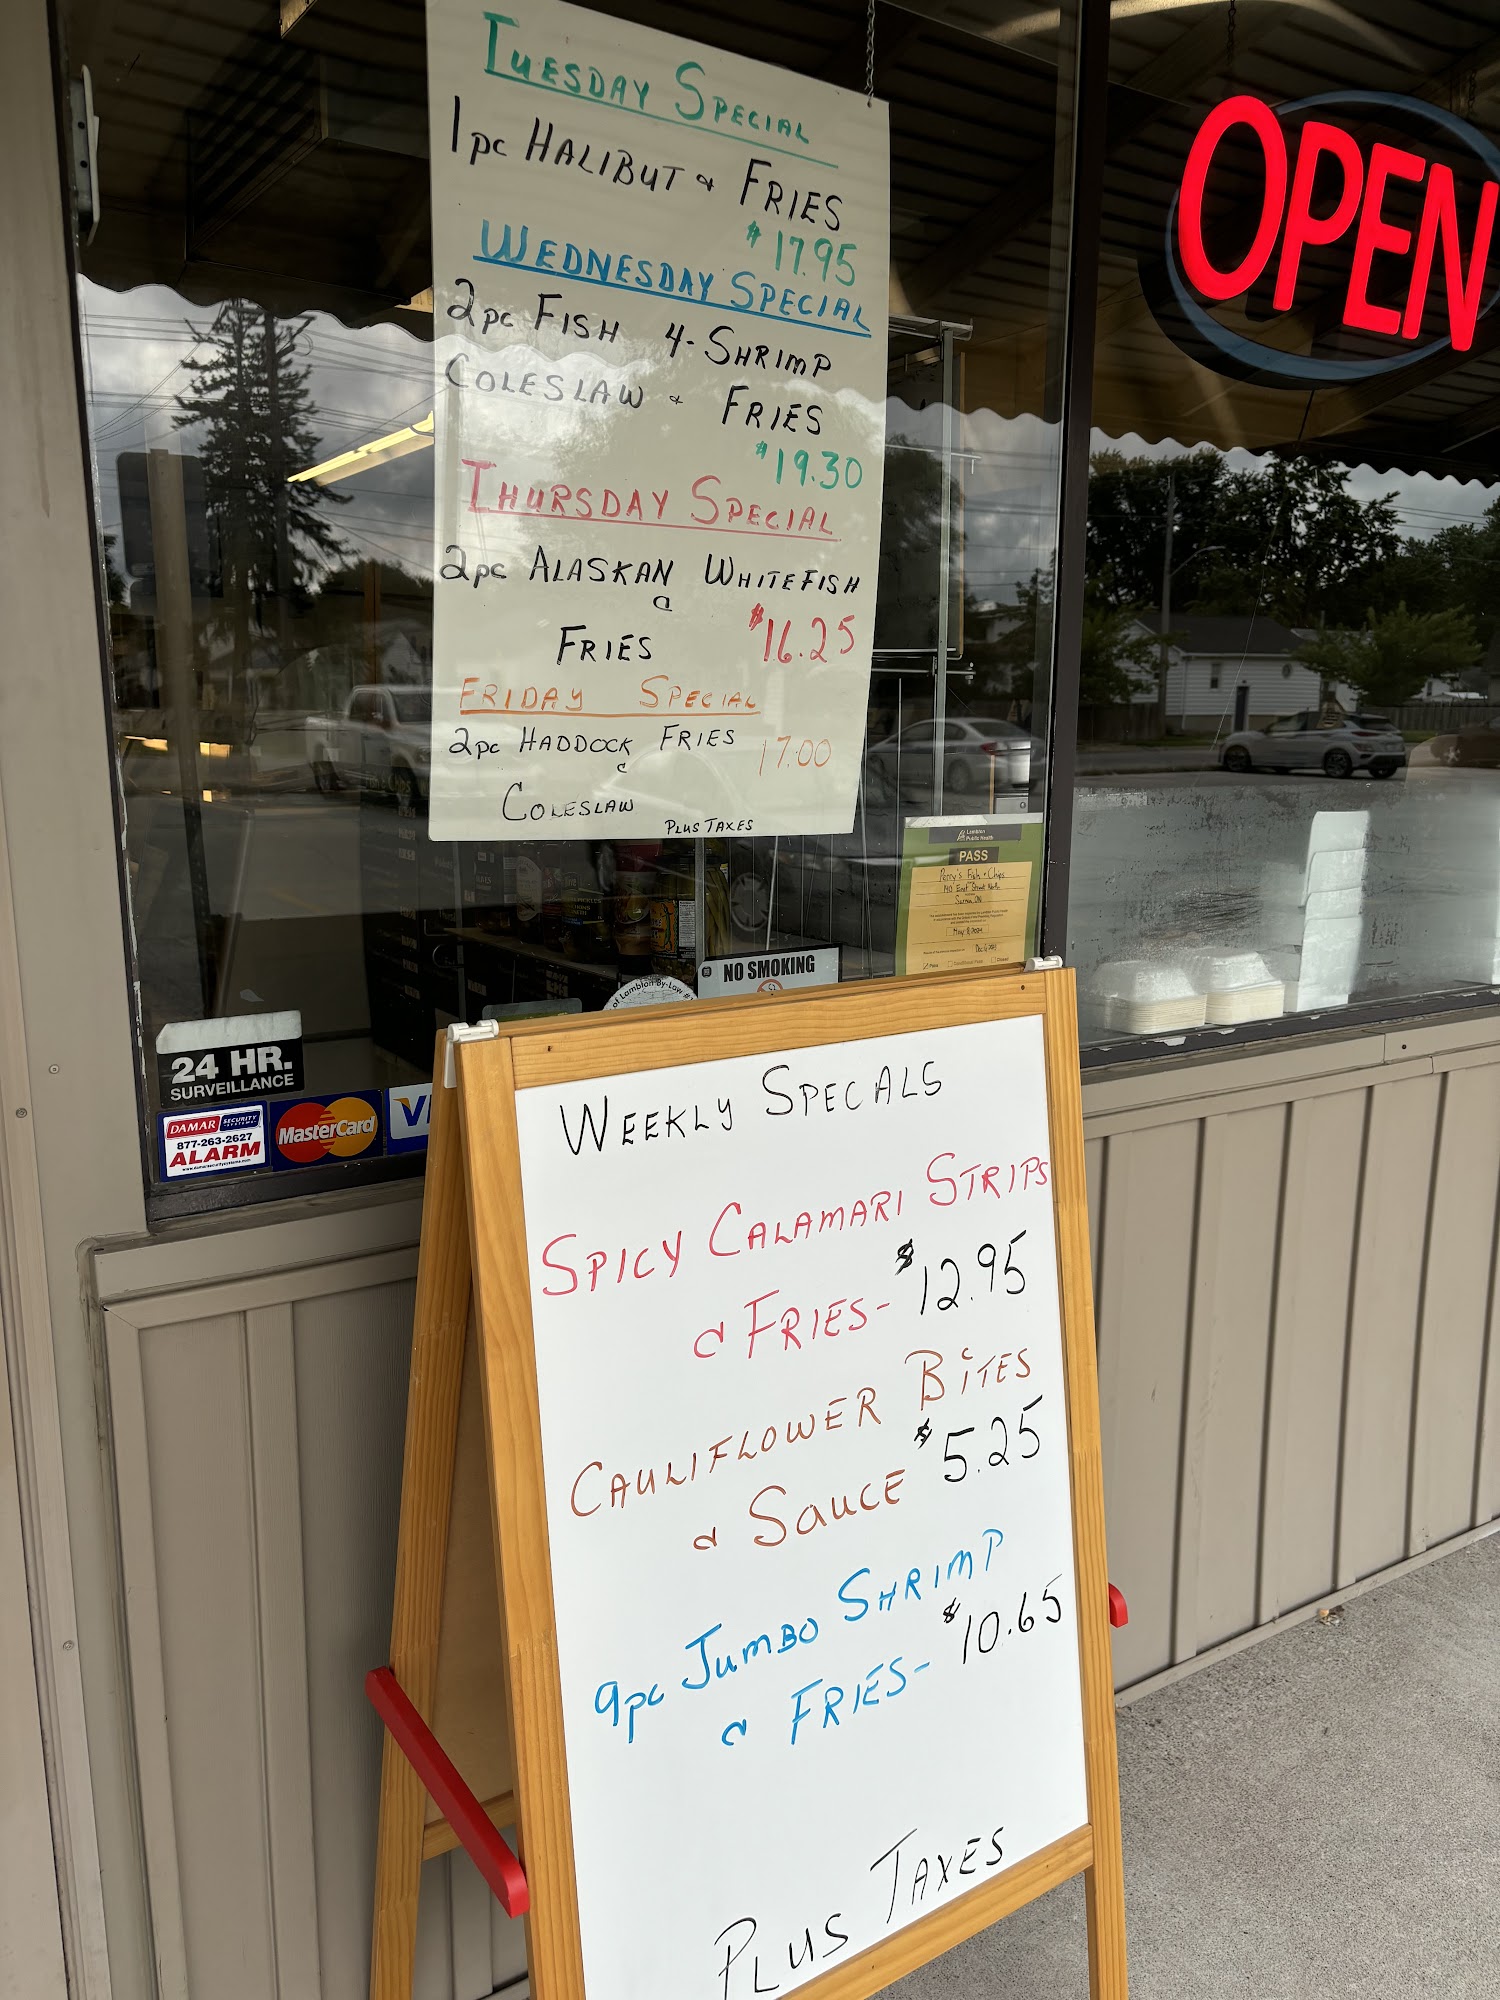 TUESDAY SPECIAL
1pc HALIBUT & FRIES
$17.95
WEDNESDAY SPECIAL
2pc FISH 4-SHRIMP
COLESLAW & FRIES
$19.30
THURSDAY SPECIAL
2pc ALASKAN WHITEFISH
&
FRIES $16.25
FRIDAY SPECIAL
2pc HADDOCK FRIES 17.00
&
COLESLAW
PLUS TAXES
OPEN
Lambton
Public Health
PASS
Perry's Fish & Chips
Sarnia, ON
NO SMOKING
of Lambton By-Law #
24 HR.
SURVEILLANCE
DAMAR SECURITY SYSTEMS
877-263-2627
ALARM
MasterCard
WEEKLY SPECALS
SPICY CALAMARI STRIPS
& FRIES- $12.95
CAULIFLOWER BITES
& SAUCE $5.25
9pc JUMBO SHRIMP
& FRIES- $10.65
PLUS TAXES